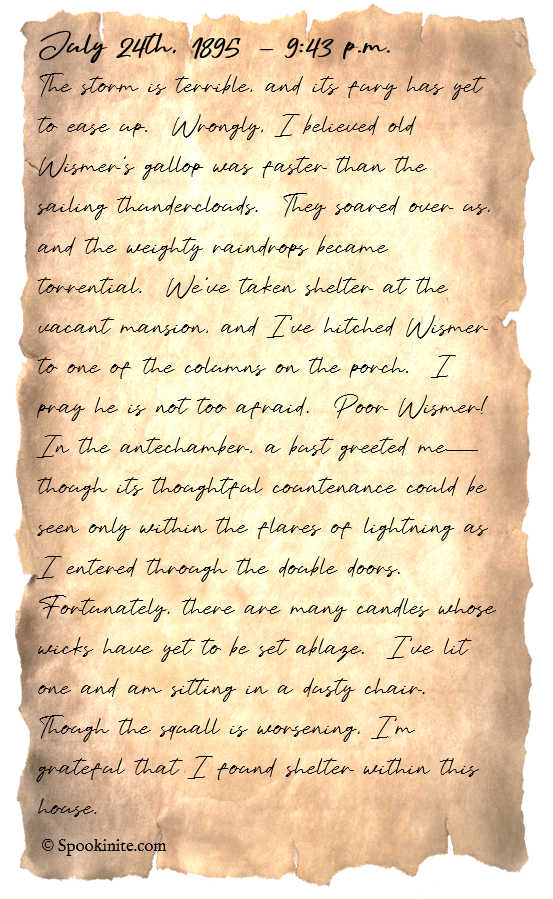 July 24th, 1895 – 9:43 p.m.
The storm is terrible, and its fury has yet
to ease up. Wrongly, I believed old
Wismer's gallop was faster than the
sailing thunderclouds. They soared over us,
and the weighty raindrops became
torrential. We've taken shelter at the
vacant mansion, and I've hitched Wismer
to one of the columns on the porch. I
pray he is not too afraid. Poor Wismer!
In the antechamber, a bust greeted me—
though its thoughtful countenance could be
seen only within the flares of lightning as
I entered through the double doors.
Fortunately, there are many candles whose
wicks have yet to be set ablaze. I've lit
one and am sitting in a dusty chair.
Though the squall is worsening, I'm
grateful that I found shelter within this
house.
© Spookinite.com